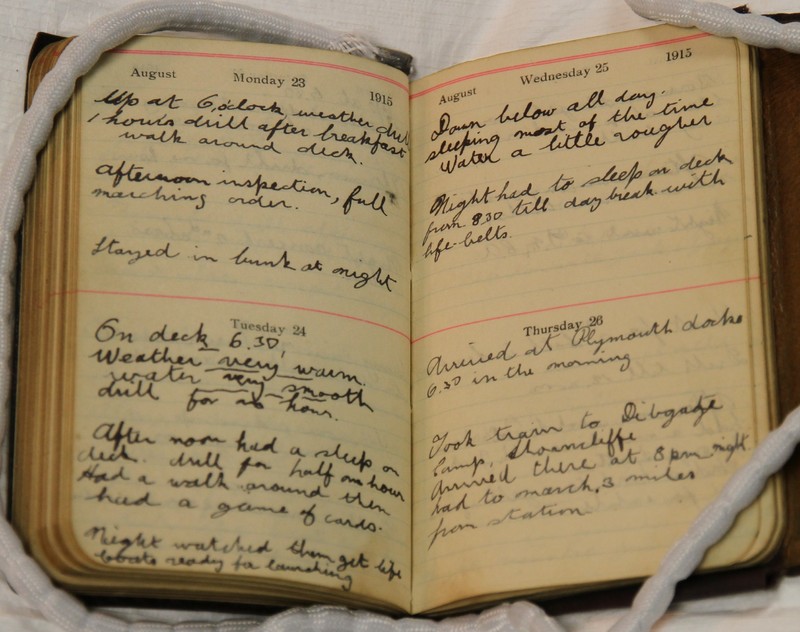 August Monday 23 1915
Up at 6, o'clock, weather dull
1 hours drill after breakfast
walk around deck.
Afternoon inspection, full
marching order.
Stayed in bunk at night
Tuesday 24
On deck 6.30,
Weather very warm.
water very smooth
drill for hour.
After noon had a sleep on
deck. drill for half an hour
Had a walk around then
had a game of cards.
Night watched them get life
boats ready for launching
August Wednesday 25 1915
Down below all day.
sleeping most of the time
Water a little rougher
Night had to sleep on deck
from 8.30 till day break with
life-belts.
Thursday 26
Arrived at Plymouth docks
6.30 in the morning
Took train to Dibgate
Camp, Shorncliffe
Arrived there at 8 pm night.
had to march, 3 miles
from station